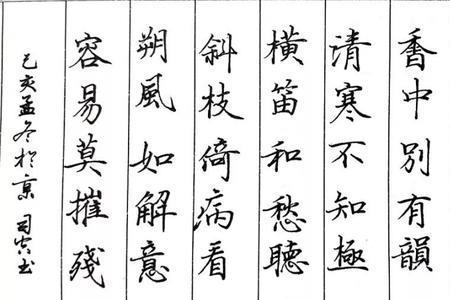 香中別有韻
清寒不知極
橫笛和愁聽
斜枝倚病看
朔風如解意
容易莫摧殘
己亥孟冬於京 司书